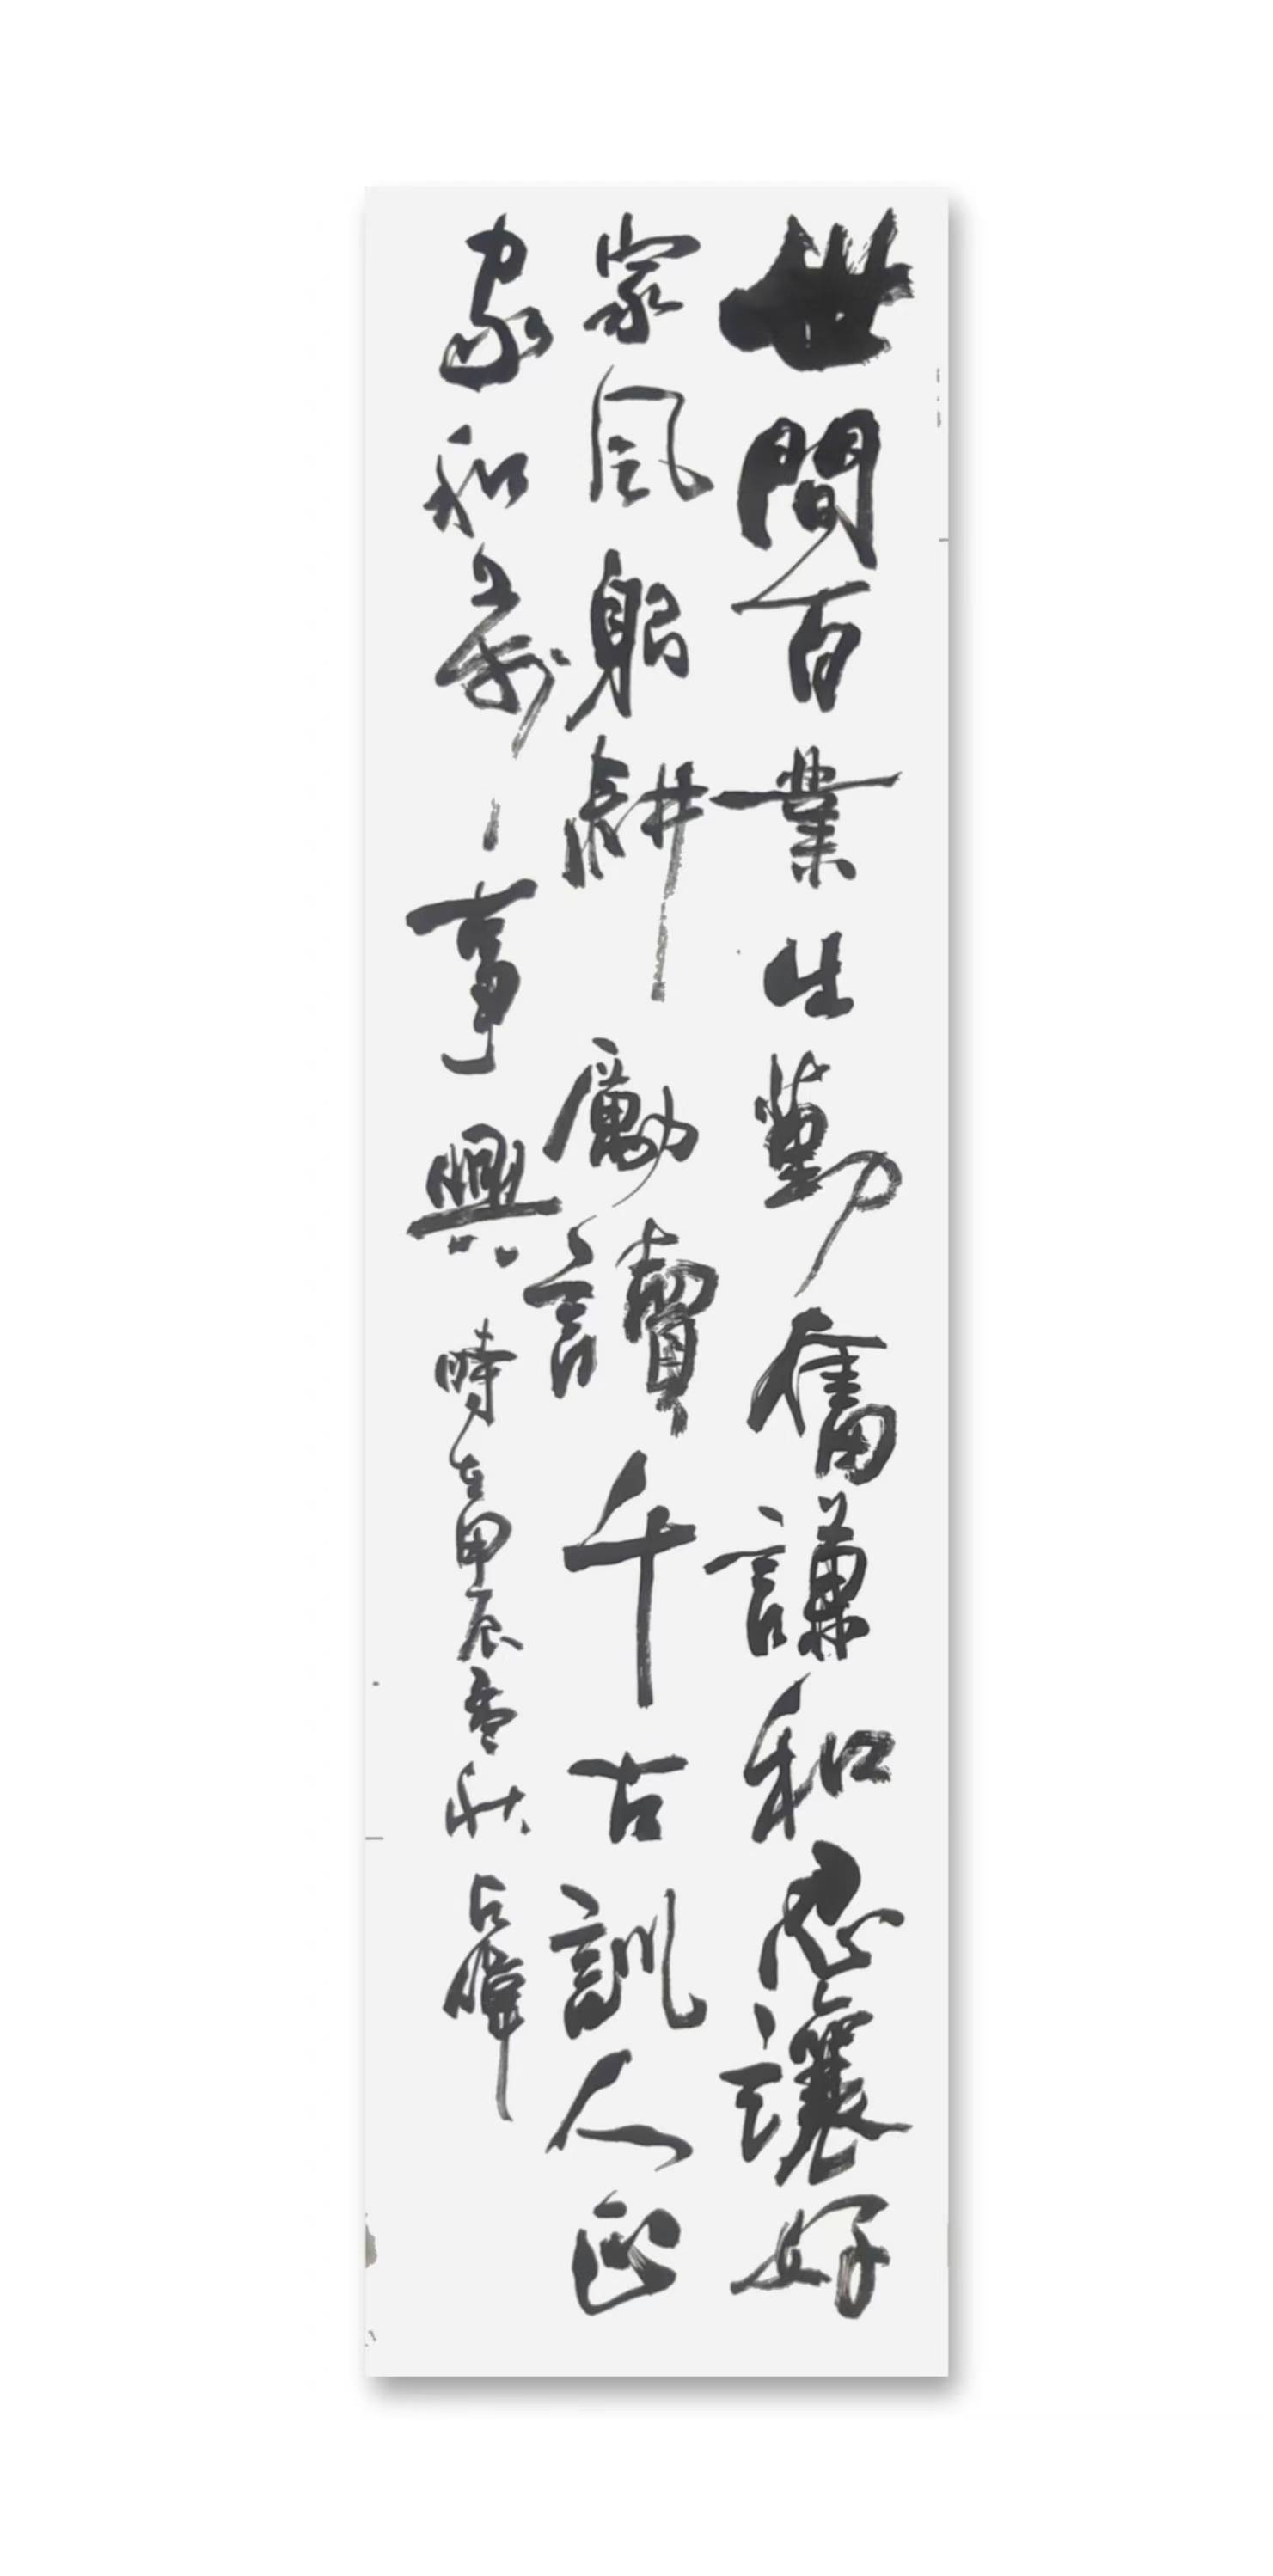 世間百業出勤奮謙和忍讓好
家風躬耕勵讀千古訓人正
家和萬事興時在甲辰春秋占偉